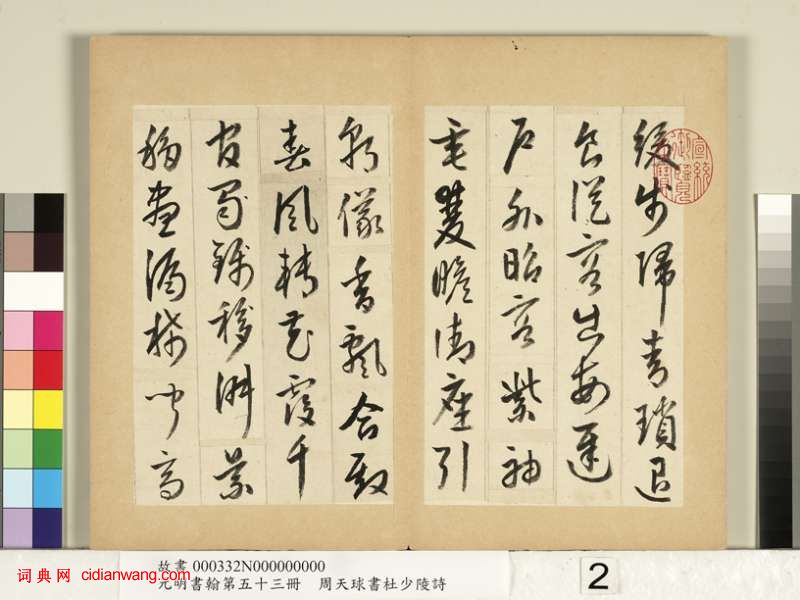 緩步歸青瑣退
食從容出每遲
戶外昭容紫袖
垂雙瞻御座引
朝儀香飄合殿
春風轉花覆千
官淑景
移晝漏稀聞高
宣統御覽之寶
故畫 000332N000000000
元明書翰第五十三冊 周天球書杜少陵詩
2
词典网 cidianwang.com